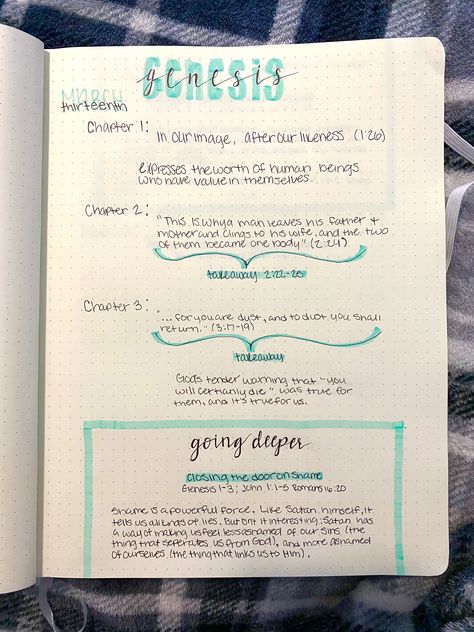 genesis
GENESIS
MARCH
thirteenth
Chapter 1: In our image, after our likeness (1:26)
expresses the worth of human beings
who have value in themselves.
Chapter 2: "This is why a man leaves his father +
mother and clings to his wife, and the two
of them became one body" (2:24)
takeaway 2:22-25
Chapter 3: "...for you are dust, and to dust you shall
return." (3:17-19)
takeaway
Gods tender warning that "you
will certianly die" was true for
them, and it's true for us.
going deeper
closing the door on shame
Genesis 1-3; John 1:1-5 Romans 16:20
Shame is a powerful force. Like Satan himself, it
tells us all kinds of lies. But isn't it interesting: Satan has
a way of making us feel less ashamed of our sins (the
thing that seperates us from God), and more ashamed
of ourselves (the thing that links us to Him).